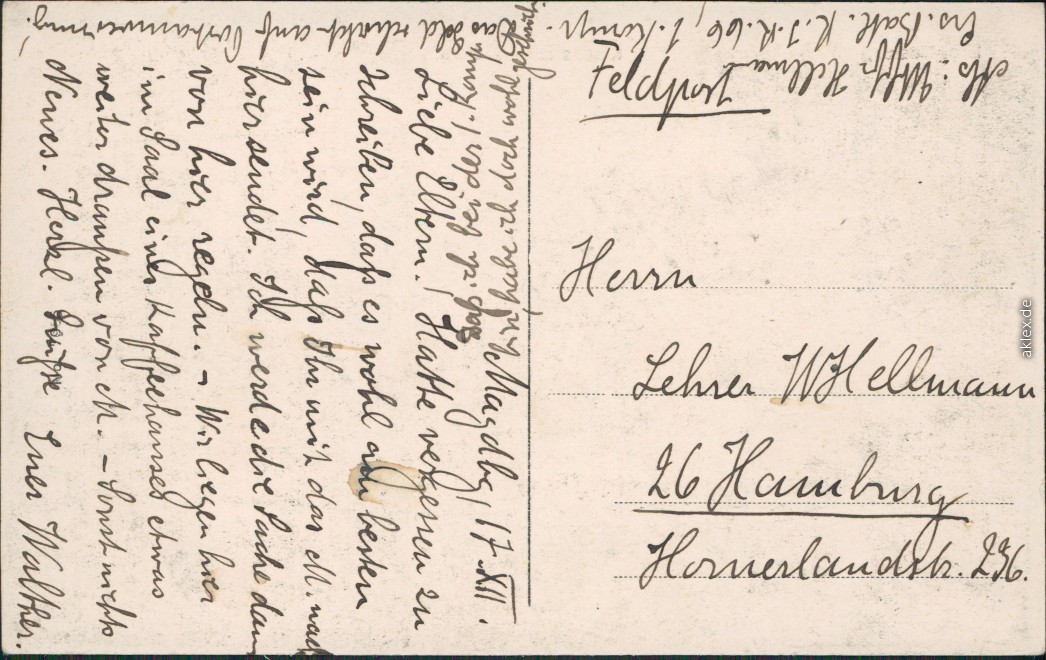 Abs: Uffz. Hellmann
Ers. Batl. R. I. R. 66, 1. Komp.
Feldpost
Herrn
Lehrer W Hellmann
26 Hamburg
Hornerlandstr. 236.
Magdbg, 17. XII.
Liebe Eltern! Hatte vergessen zu
schreiben, dass es wohl am besten
sein wird, dass Ihr mir das M. nach
hier sendet. Ich werde die Sache dann
von hier regeln. – Wir liegen hier
im Saal eines Kaffeehauses etwas
weiter draussen von M. – Sonst nichts
Neues. Herzl. Grüsse Euer Walther.
Das Geld schickt auf
aklex.de